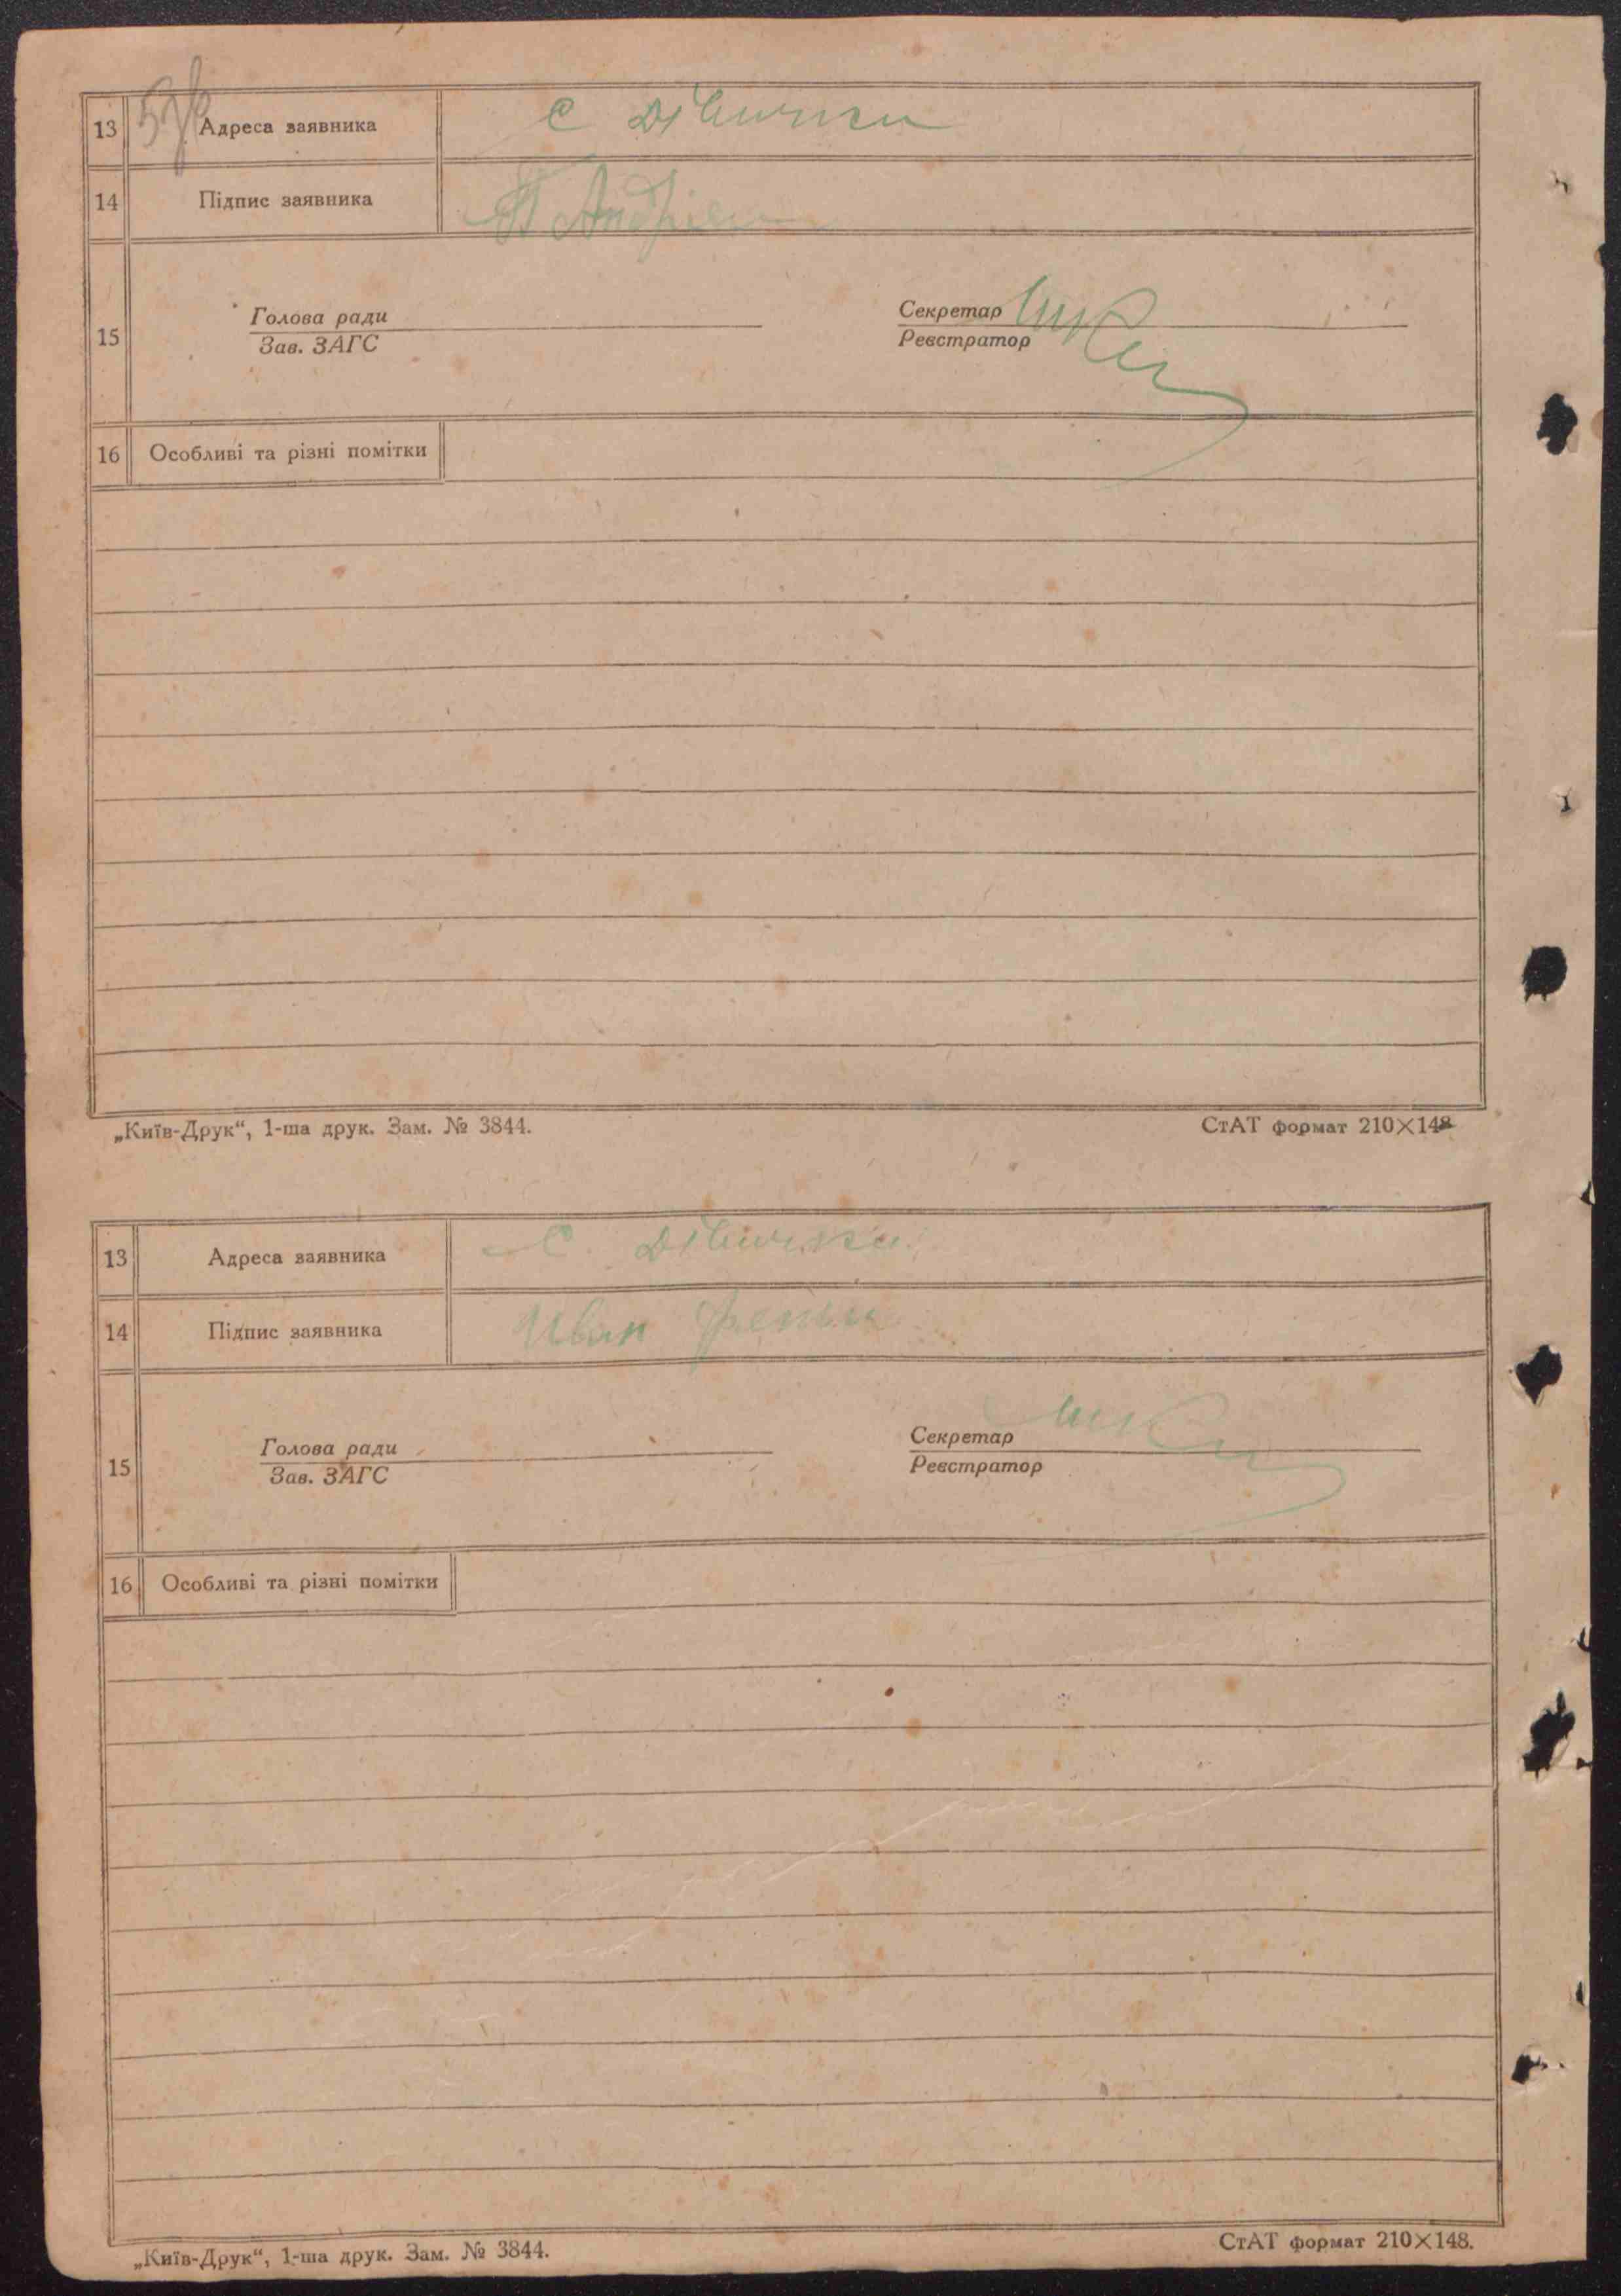 13 Адреса заявника С Дівички
14 Підпис заявника П Андрієн
15 Голова ради Секретар
Зав. ЗАГС Реєстратор
16 Особливі та різні помітки
„Київ-Друк“, 1-ша друк. Зам. № 3844. СтАТ формат 210×148
13 Адреса заявника С. Дівички
14 Підпис заявника Иван
15 Голова ради Секретар
Зав. ЗАГС Реєстратор
16 Особливі та різні помітки
„Київ-Друк“, 1-ша друк. Зам. № 3844. СтАТ формат 210×148.